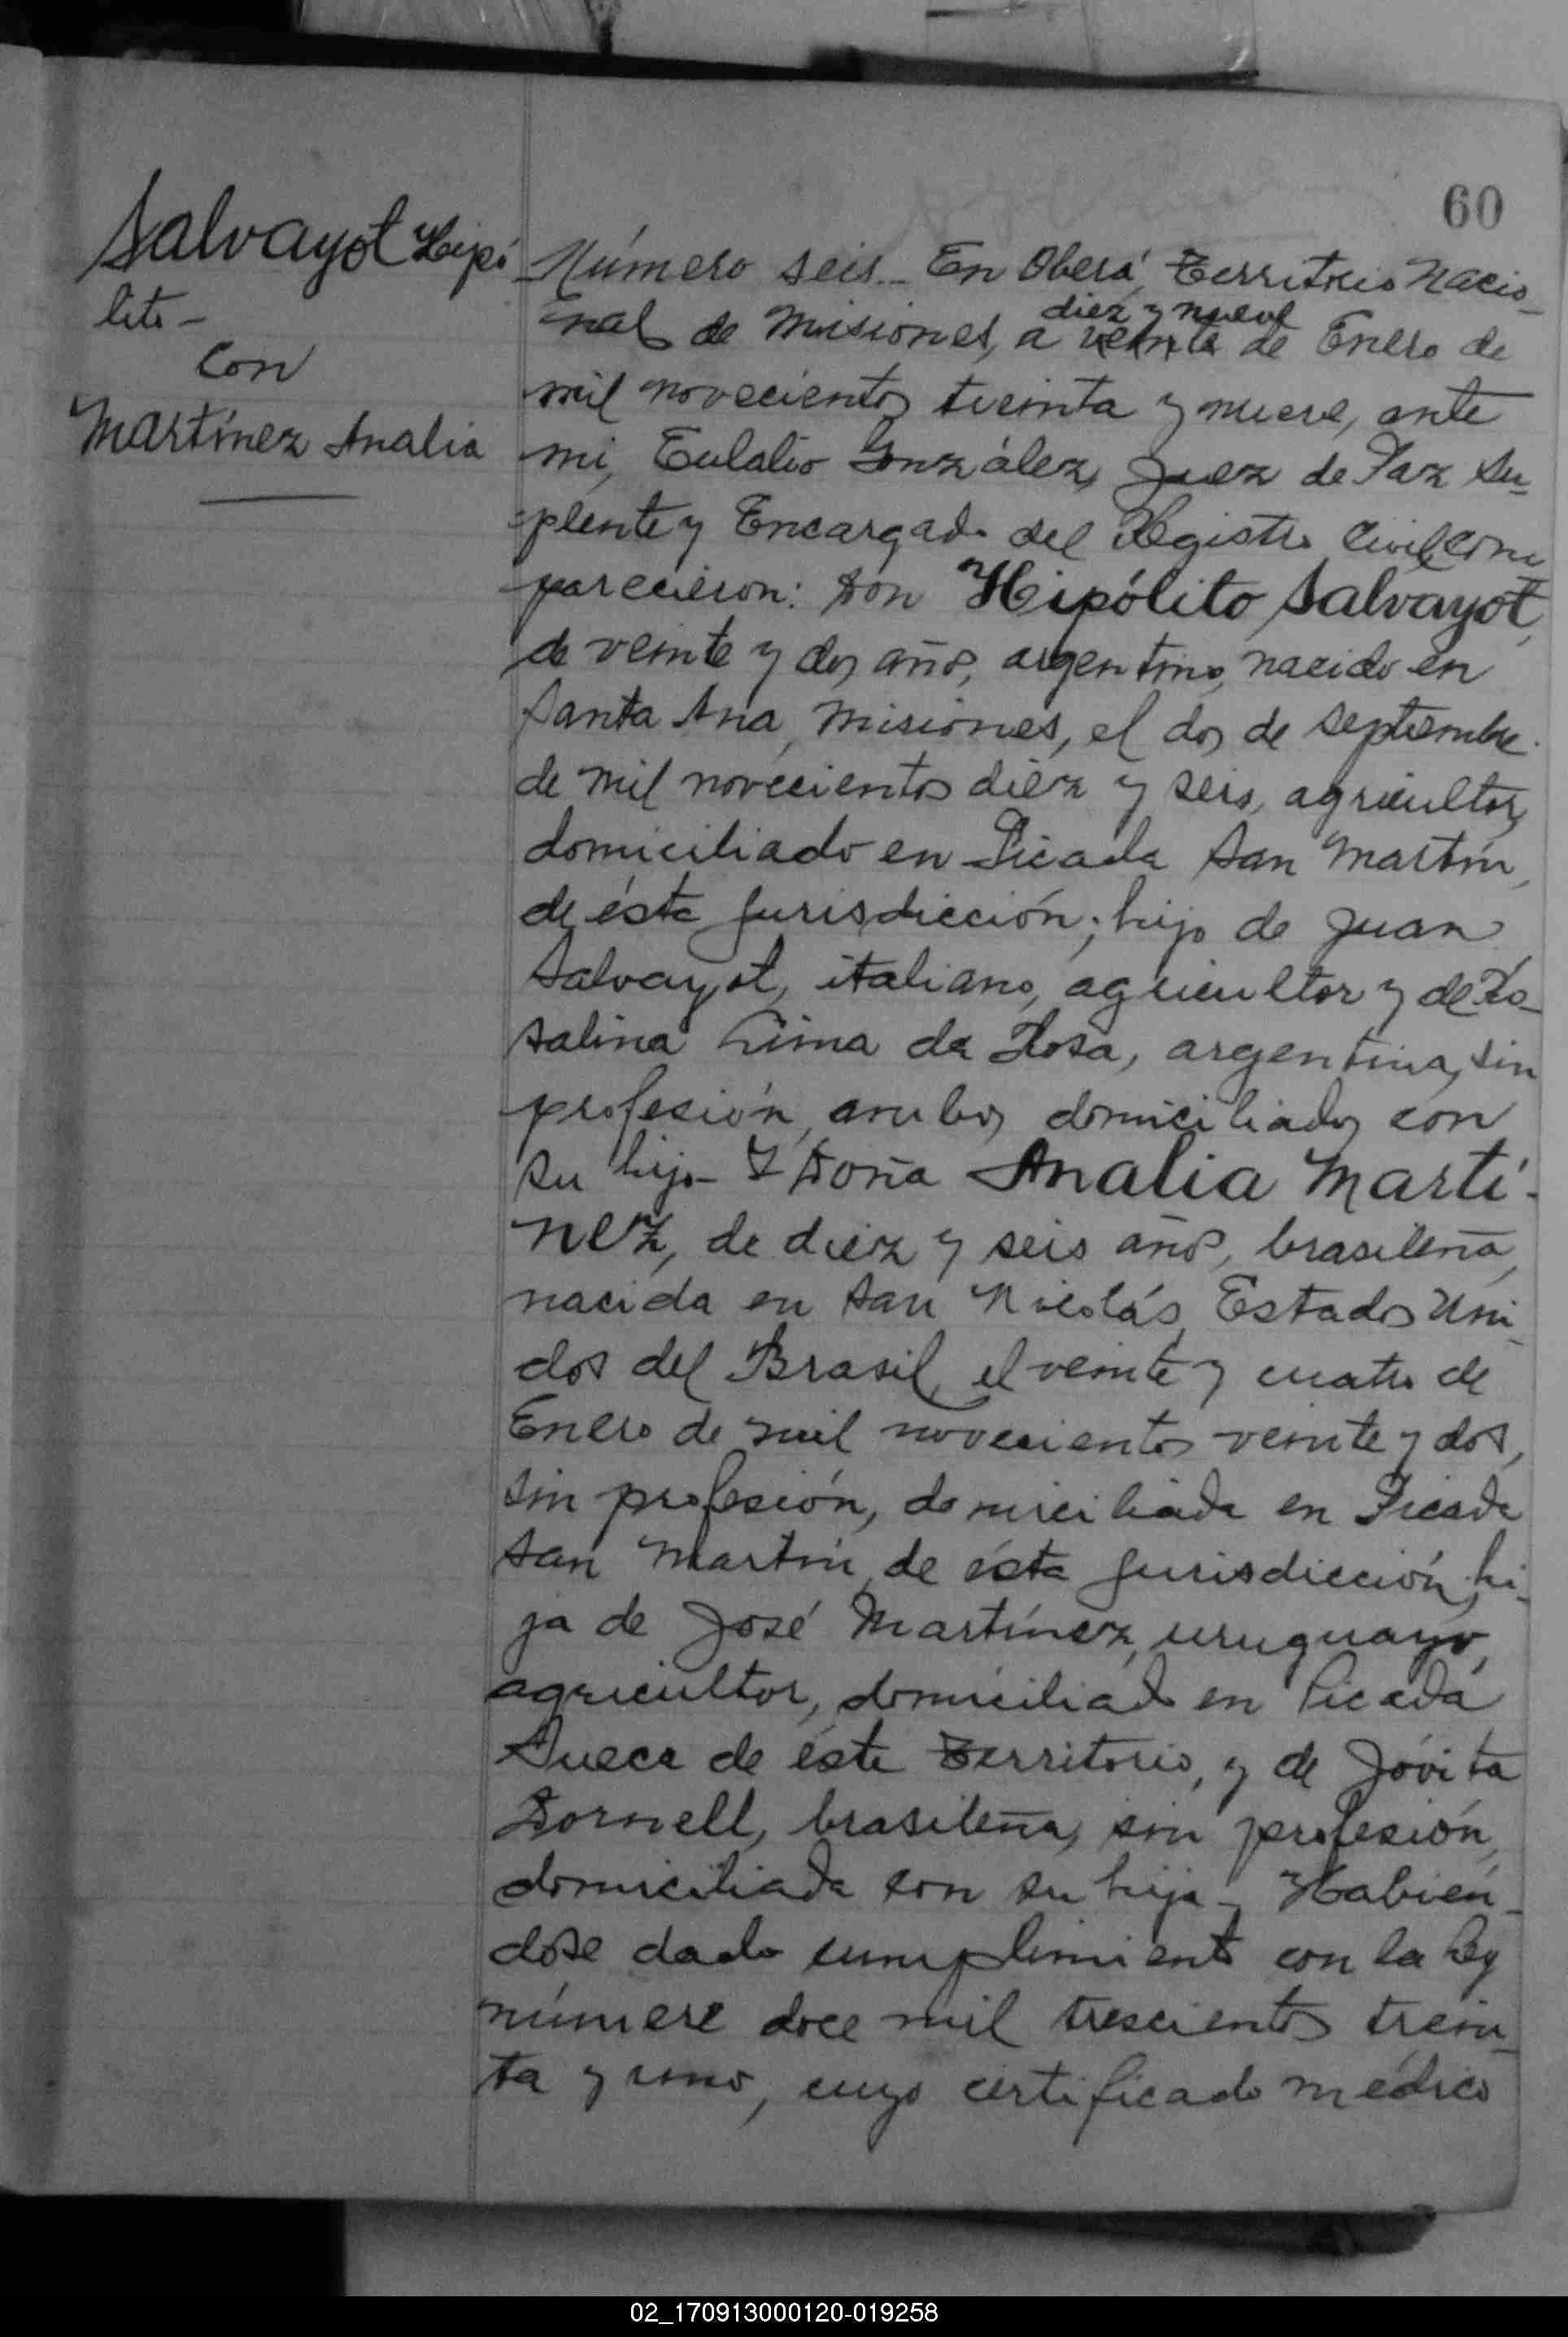 60
Salvayot Hipó
lito -
con
Martínez Analia
Número seis._ En Oberá, Territorio Nacio_
nal de Misiones, a veinte diez y nueve de Enero de
mil novecientos treinta y nueve, ante
mi, Eulalio González, Juez de Paz Su_
plente y Encargado del Registro Civil, com
parecieron: Don Hipólito Salvayot,
de veinte y dos años, argentino, nacido en
Santa Ana, Misiones, el dos de septiembre
de mil novecientos diez y seis, agricultor,
domiciliado en Picada San Martín,
de ésta jurisdicción; hijo de Juan
Salvayot, italiano, agricultor y de Ro_
salina Lima da Rosa, argentina, sin
profesión, ambos domiciliados con
su hijo- Y Doña Analia Martí-
nez, de diez y seis años, brasileña,
nacida en San Nicolás, Estados Uni_
dos del Brasil, el veinte y cuatro de
Enero de mil novecientos veinte y dos,
sin profesión, domiciliada en Picada
San Martín, de ésta jurisdicción, hi_
ja de José Martínez, uruguayo,
agricultor, domiciliado en Picada
Sueca de éste Territorio, y de Jóvita
Dornell, brasileña, sin profesión,
domiciliada con su hija- Habién_
dose dado cumplimiento con la Ley
número doce mil trescientos trein_
ta y uno, cuyo certificado médico
02_170913000120-019258